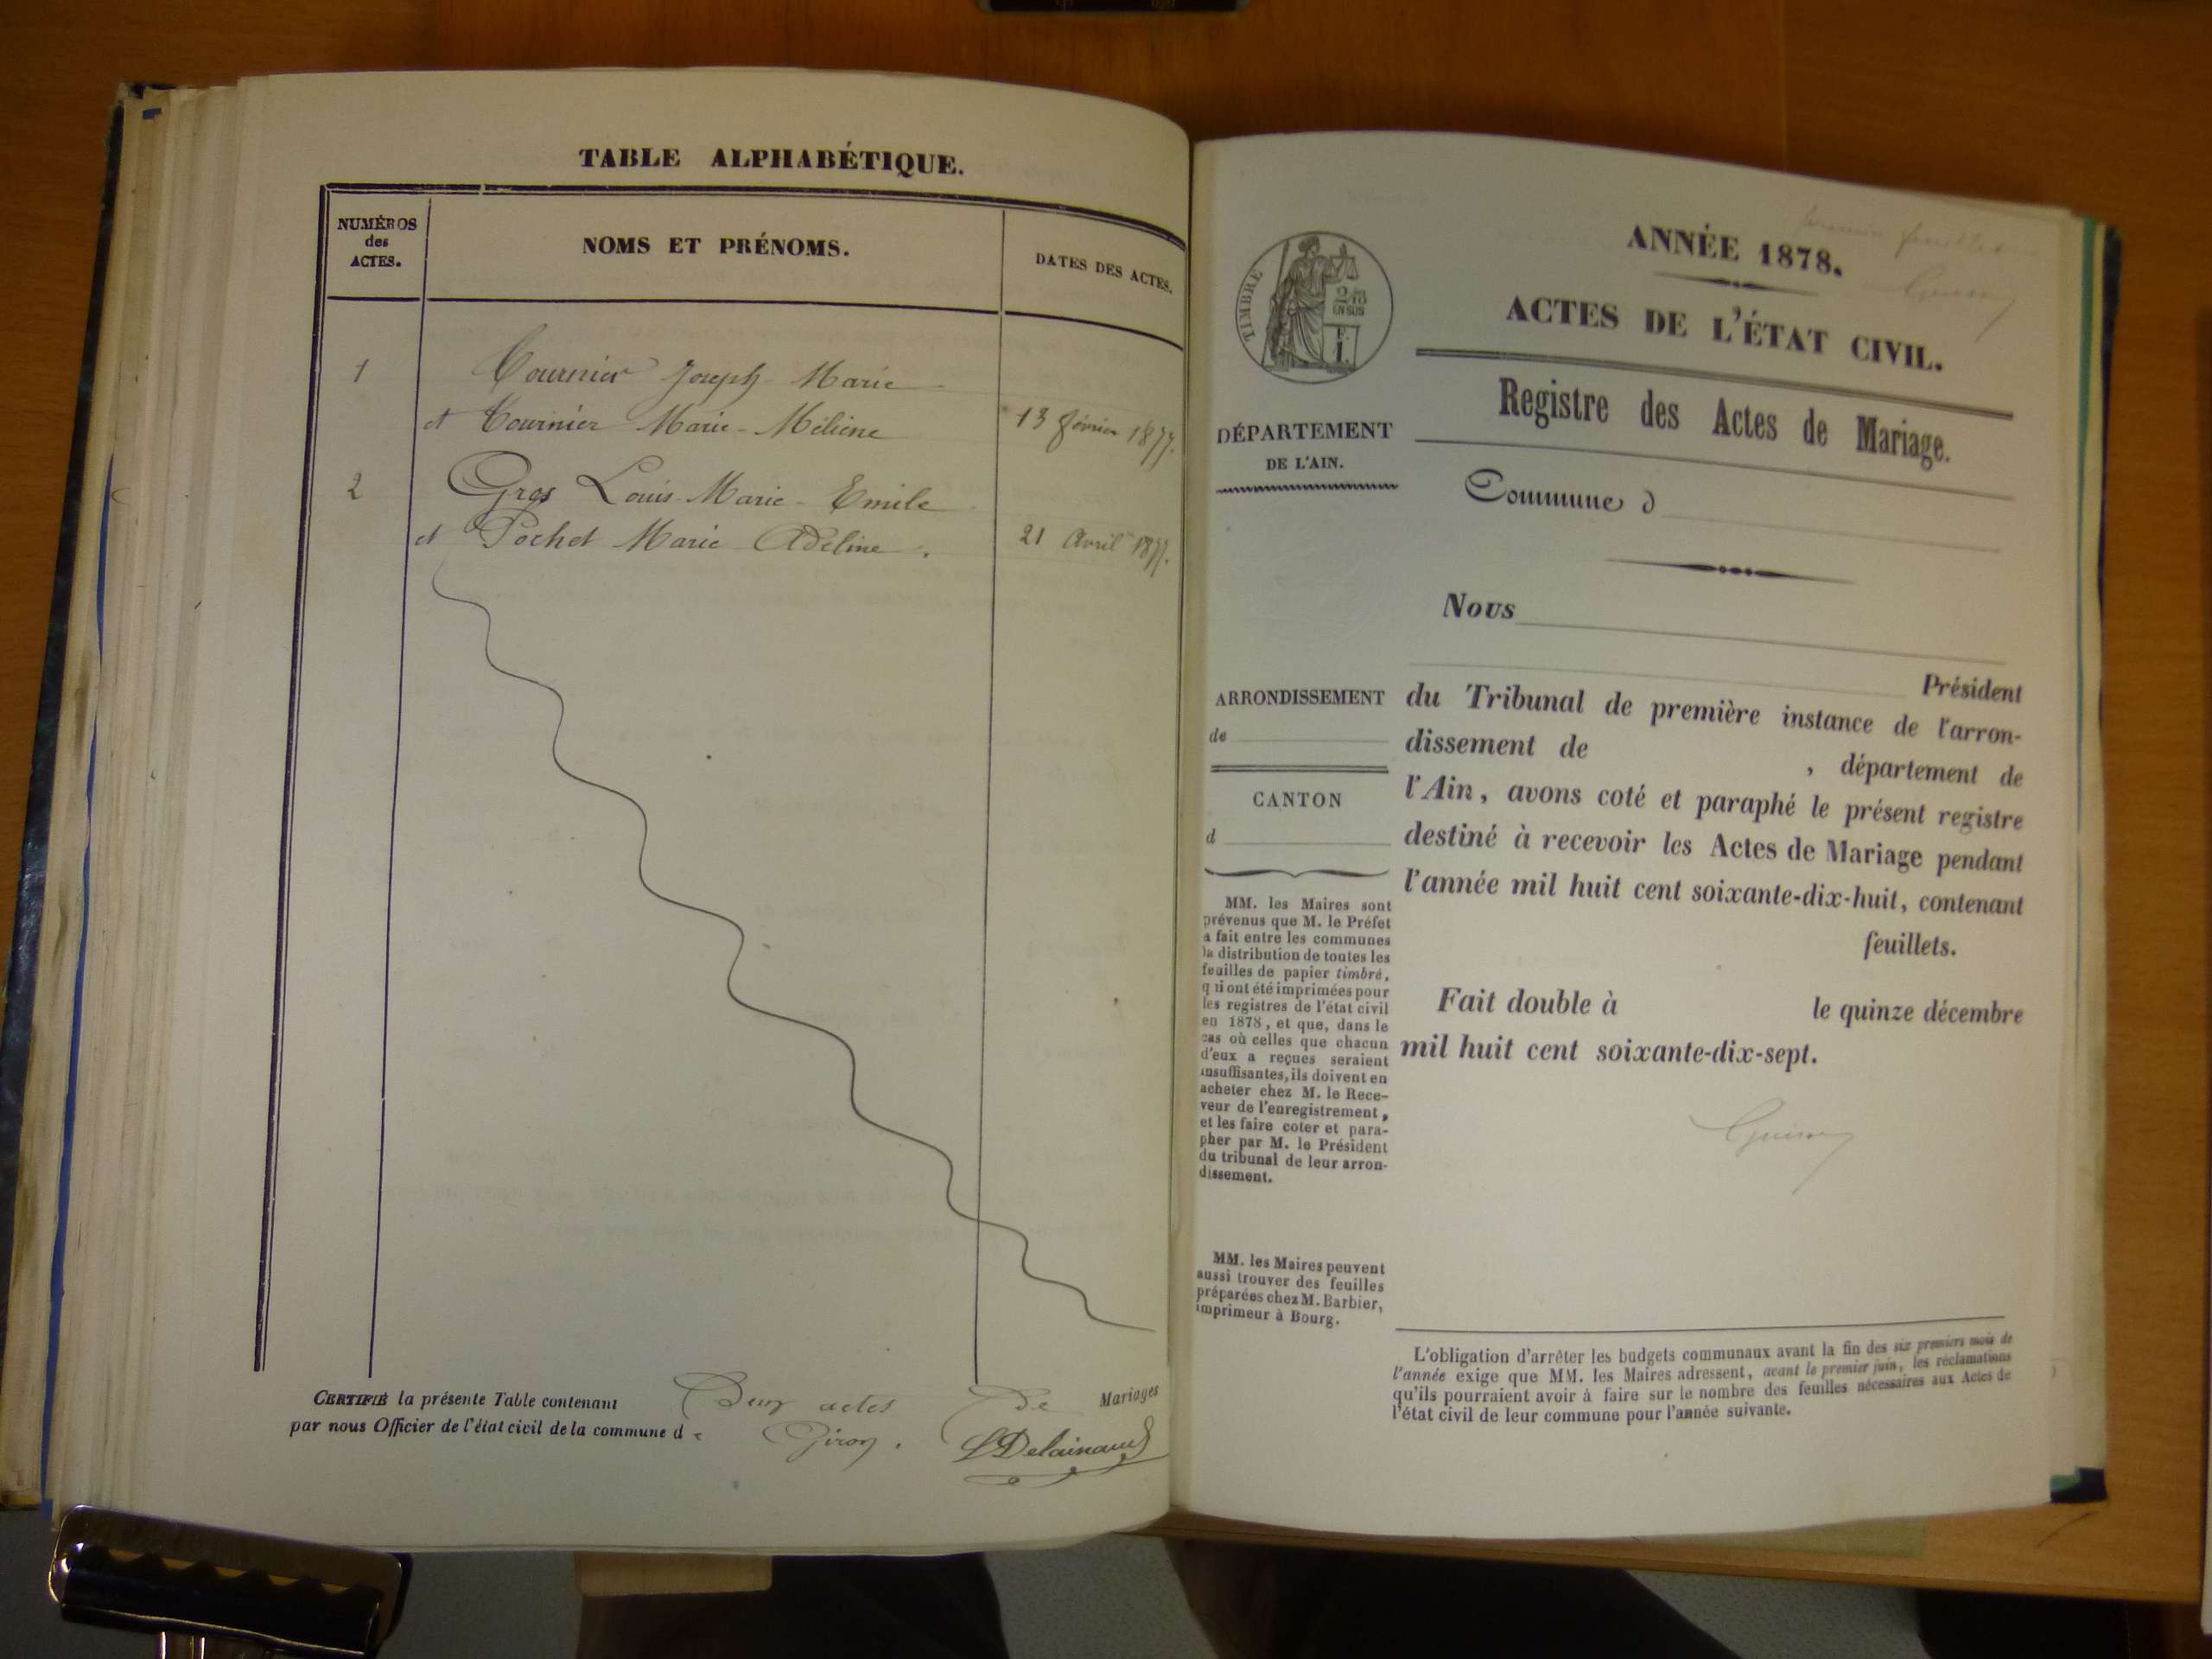 TABLE ALPHABÉTIQUE.
NUMÉROS
des
ACTES.
NOMS ET PRÉNOMS.
DATES DES ACTES.
1 Tournier Joseph Marie
et Tournier Marie-Méliène 13 février 1877.
2 Gros Louis Marie-Emile
et Pochet Marie Adeline. 21 Avril 1877.
CERTIFIÉ la présente Table contenant Deux actes De Mariages
par nous Officier de l'état civil de la commune de Giron.
Delainaud
feuilles
TIMBRE
2/10
EN SUS
F.
1.
ANNÉE 1878.
ACTES DE L'ÉTAT CIVIL.
Registre des Actes de Mariage.
DÉPARTEMENT
DE L'AIN.
Commune d
Nous
Président
ARRONDISSEMENT
de
CANTON
d
du Tribunal de première instance de l'arron-
dissement de , département de
l'Ain, avons coté et paraphé le présent registre
destiné à recevoir les Actes de Mariage pendant
l'année mil huit cent soixante-dix-huit, contenant
feuillets.
Fait double à le quinze décembre
mil huit cent soixante-dix-sept.
MM. les Maires sont
prévenus que M. le Préfet
a fait entre les communes
la distribution de toutes les
feuilles de papier timbré,
qui ont été imprimées pour
les registres de l'état civil
en 1878, et que, dans le
cas où celles que chacun
d'eux a reçues seraient
insuffisantes, ils doivent en
acheter chez M. le Rece-
veur de l'enregistrement,
et les faire coter et para-
pher par M. le Président
du tribunal de leur arron-
dissement.
MM. les Maires peuvent
aussi trouver des feuilles
préparées chez M. Barbier,
imprimeur à Bourg.
L'obligation d'arrêter les budgets communaux avant la fin des six premiers mois de
l'année exige que MM. les Maires adressent, avant le premier juin, les réclamations
qu'ils pourraient avoir à faire sur le nombre des feuilles nécessaires aux Actes de
l'état civil de leur commune pour l'année suivante.